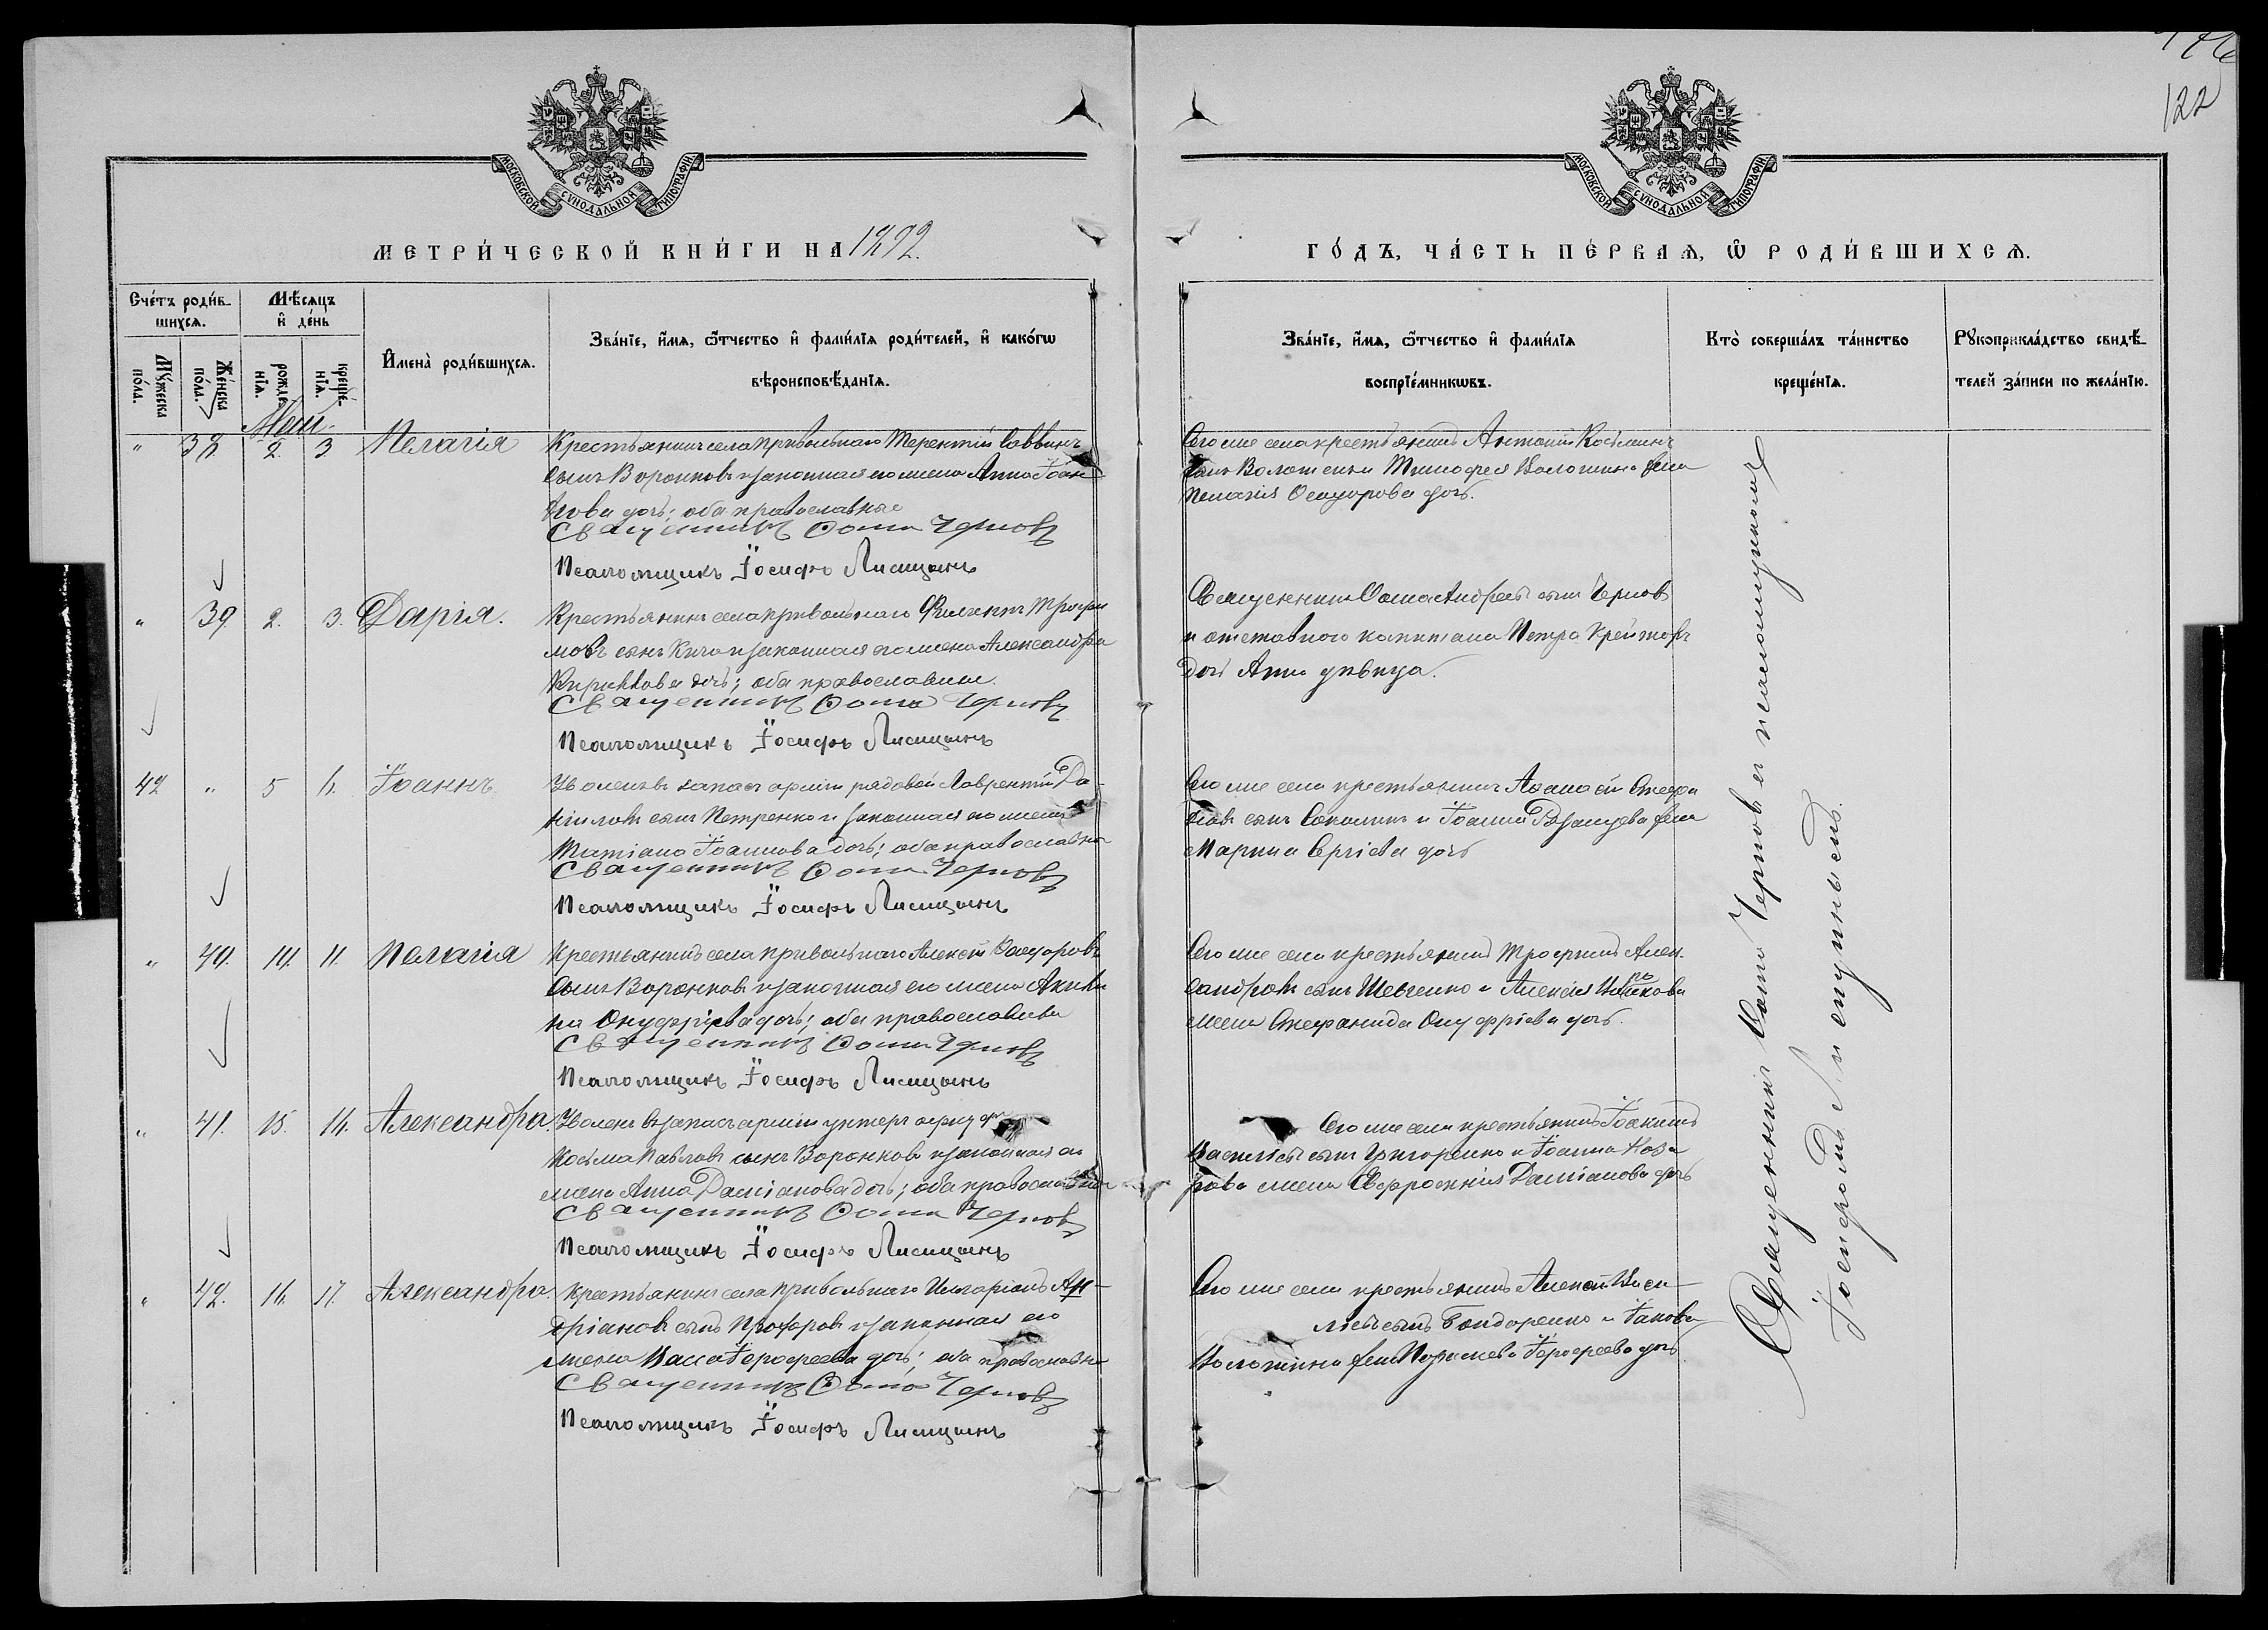 122
МОСКОВСКОЙ СѴНОДАЛЬНОЙ ТИПОГРАФІИ
МОСКОВСКОЙ СѴНОДАЛЬНОЙ ТИПОГРАФІИ
МЕТРИ́ЧЕСКОЙ КНИ́ГИ НА 1892.
ГО́ДЪ, ЧА́СТЬ ПЕ́РВАЯ, Ѿ РОДИ́ВШИХСЯ.
Сче́тъ роди́в-
шихся.
Мѣ́сяцъ
и҆ де́нь
Мꙋ́жеска по́ла.
Же́нска по́ла.
рожде́нїя.
креще́нїя.
И҆мена̀ роди́вшихся.
Зва́нїе, и҆́мя, ѻ҆́тчество и҆ фами́лїя роди́телей, и҆ како́гѡ
вѣроисповѣ́данїя.
Зва́нїе, и҆́мя, ѻ҆́тчество и҆ фами́лїя
воспрїе́мникѡвъ.
Кто̀ соверша́лъ та́инство
креще́нїя.
Рꙋкоприкла́дство свидѣ́-
телей за́писи по жела́нїю.
Май
" 38 2. 3 Пелагія
Крестьянинъ села Привольнаго Терентій Саввинъ
сынъ Воронковъ и законная его жена Анна Іоан
нова дочь; оба православные
Священникъ Ѳома Черновъ
Псаломщикъ Іосифъ Лисицынъ
Сего же села крестьянинъ Антоній Косьминъ
сынъ Волошенко и Тимофея Волошина жена
Пелагія Ѳедорова дочь.
" 39. 2. 3. Дарія.
Крестьянинъ села Привольнаго Филиппъ Трофи
мовъ сынъ и законная его жена Александра
Кириллова дочь; оба православные.
Священникъ Ѳома Черновъ
Псаломщикъ Іосифъ Лисицынъ
Священникъ Ѳома Андреевъ сынъ Черновъ
и отставного капитана Петра
дочь Анна дѣвица.
42 " 5 6. Іоаннъ
Уволен. въ запасъ арміи рядовой Лаврентій Да-
ніиловъ сынъ Петренко и законная его жена
Татіана Іоаннова дочь; оба православные
Священникъ Ѳома Черновъ
Псаломщикъ Іосифъ Лисицынъ
Сего же села крестьянинъ Аѳанасій Стефа
новъ сынъ и Іоанна жена
Марина Сергіева дочь
" 40. 10. 11. Пелагія
Крестьянинъ села Привольнаго Алексѣй Ѳедоровъ
сынъ Воронковъ и законная его жена Акили
на Онуфріева дочь; оба православные
Священникъ Ѳома Черновъ
Псаломщикъ Іосифъ Лисицынъ
Сего же села крестьянинъ Трофимъ Алек-
сандровъ сынъ Шевченко и Алексія
жена Стефанида Онуфріева дочь.
" 41. 15. 16. Александра.
Уволен. въ запасъ арміи унтеръ офицеръ
Косьма Павловъ сынъ Воронковъ и законная его
жена Анна Даміанова дочь; оба православные
Священникъ Ѳома Черновъ
Псаломщикъ Іосифъ Лисицынъ
Сего же села крестьянинъ Іоакимъ
Васильевъ сынъ Григоренко и Іоанна Наза
рова жена Евфросинія Даміанова дочь
" 42. 16. 17. Александра
Крестьянинъ села Привольнаго Иларіонъ Ан-
дріановъ сынъ Прохоровъ и законная его
жена Васса Іерофеева дочь; оба православные
Священникъ Ѳома Черновъ
Псаломщикъ Іосифъ Лисицынъ
Сего же села крестьянинъ Алексѣй Васи-
льевъ сынъ Бондаренко и Іакова
Волошина жена Іерофеева дочь
Священникъ Ѳома Черновъ съ псаломщикомъ
Іосифомъ Лисицынымъ.